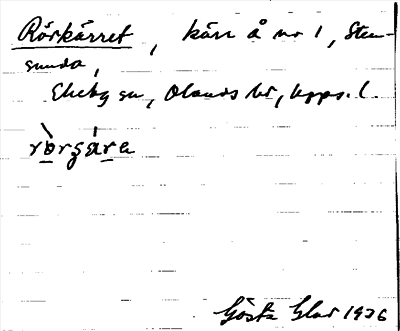 Rörkärret, kärr å nr 1, Sten-
sunda,
Ekeby sn, Olands hd, Upps. l.
Gösta Glar 1936